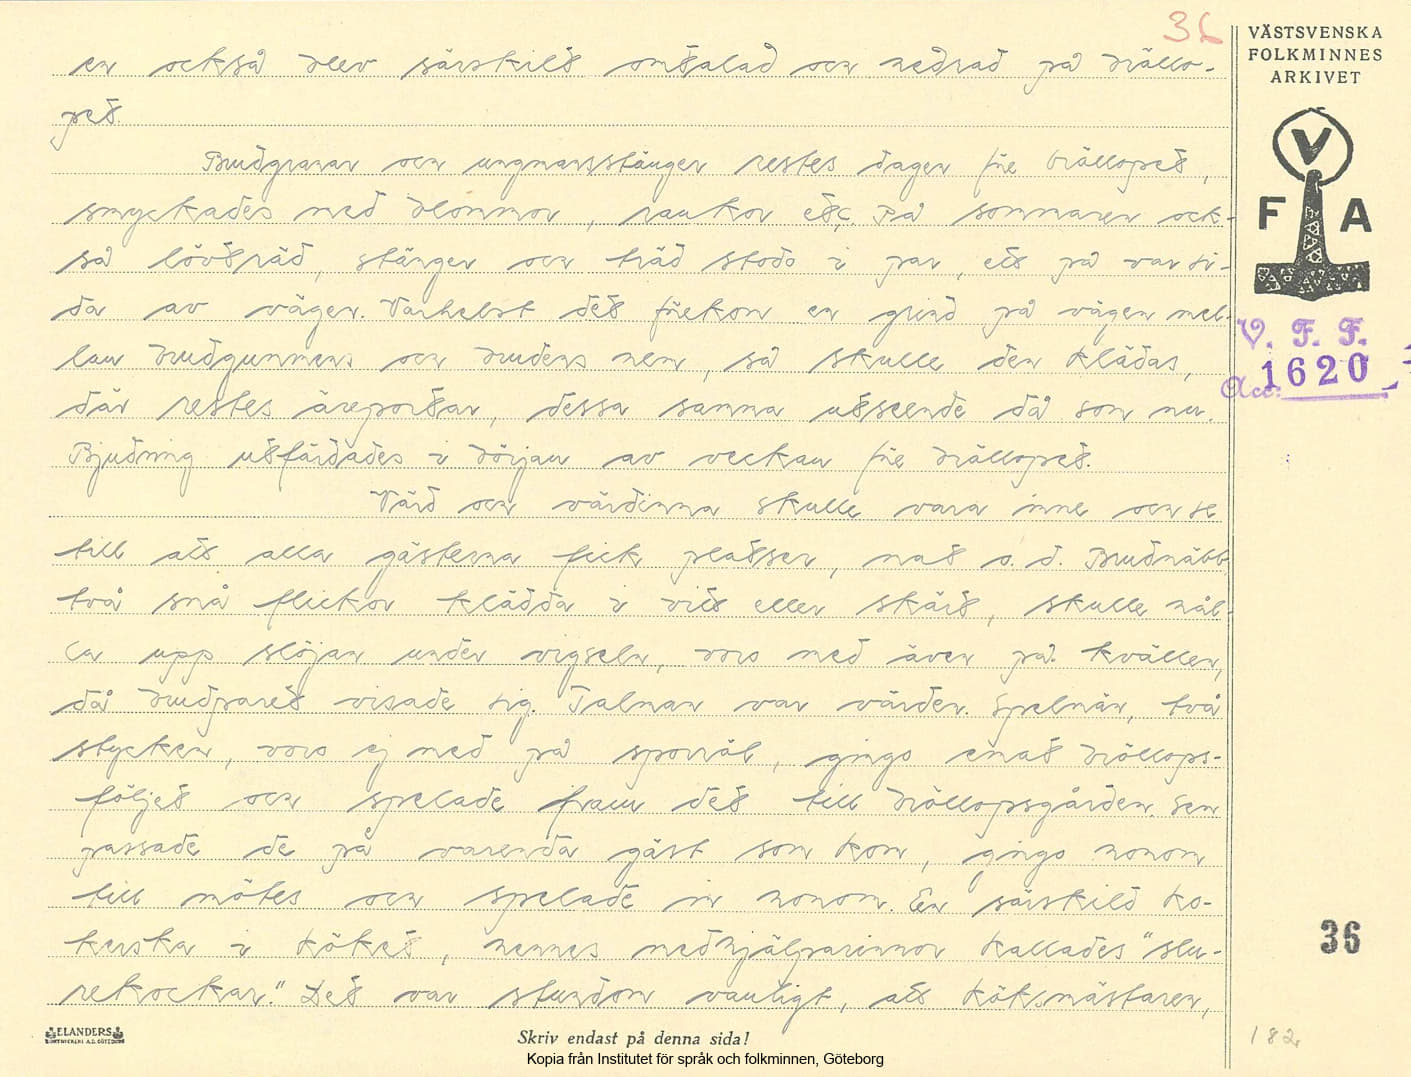 36
VÄSTSVENSKA
FOLKMINNES
ARKIVET
V
F A
V. F. F.
Acc: 1620
en också blev särskilt omtalad och hedrad på bröllo-
pet.
Brudgranar och ungmansstänger restes dagen före bröllopet,
smyckades med blommor, rankor etc. På sommaren ock-
så lövträd, stänger och träd stodo i par, ett på var si-
da av vägen. Varhelst det förekom en grind på vägen mel-
lan brudgummens och brudens hem, så skulle den klädas,
där restes äreportar, dessa samma utseende då som nu.
Bjudning utfärdades i början av veckan före bröllopet.
Värd och värdinna skulle vara inne och se
till att alla gästerna fick platser, mat o. d. Brudnäbb,
två små flickor klädda i vitt eller skärt, skulle hål-
la upp slöjan under vigseln, voro med även på kvällen,
då brudparet visade sig. Talman var värden. Spelmän, två
stycken, voro ej med på sporröl, gingo emot bröllops-
följet och spelade fram det till bröllopsgården. Sen
passade de på varenda gäst som kom, gingo honom
till mötes och spelade in honom. En särskild ko-
kerska i köket, hennes medhjälparinnor kallades "slu-
rekockar." Det var stundom vanligt, att köksmästaren,
36
182
ELANDERS
BOKTRYCKERI A.B. GÖTEBORG
Skriv endast på denna sida!
Kopia från Institutet för språk och folkminnen, Göteborg